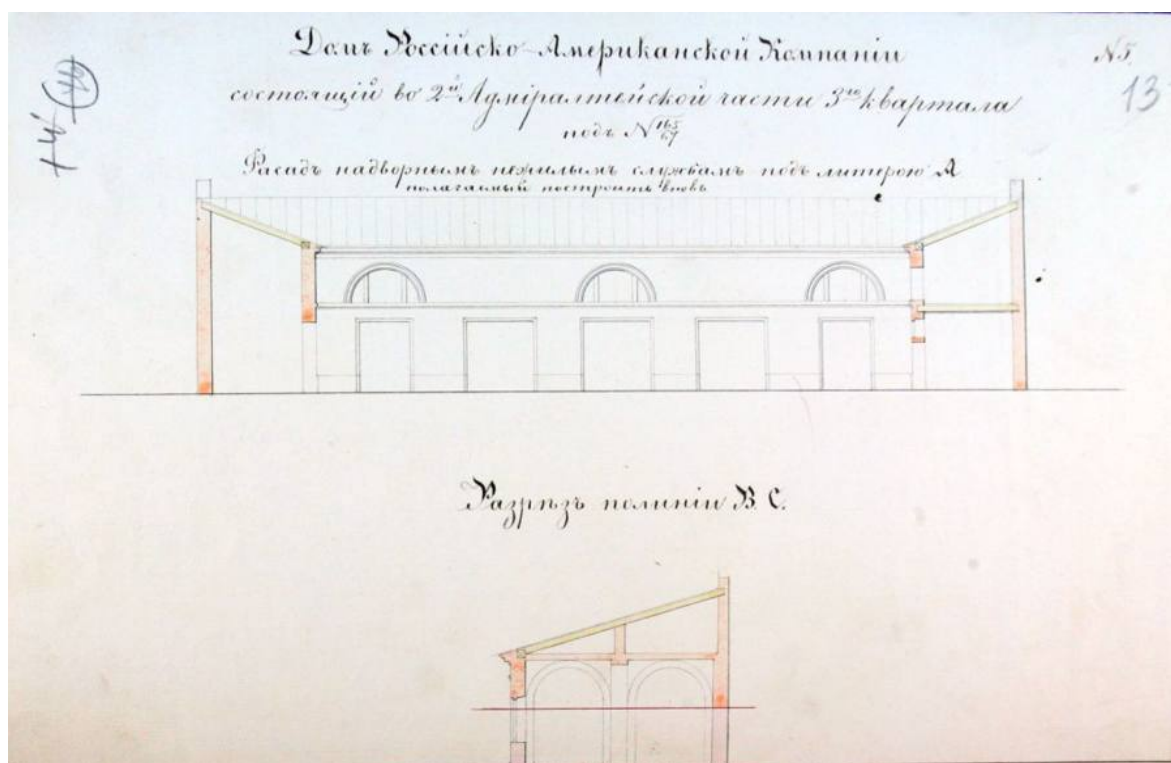 Домъ Россійско-Американской Компаніи
N5.
состоящій во 2й Адміралтейской части 3го квартала
13
подъ N 165/67
Фасадъ надворнымъ нежилымъ службамъ подъ литерою А
полагаемый построить вновь
Разрѣзъ полиніи В. С.